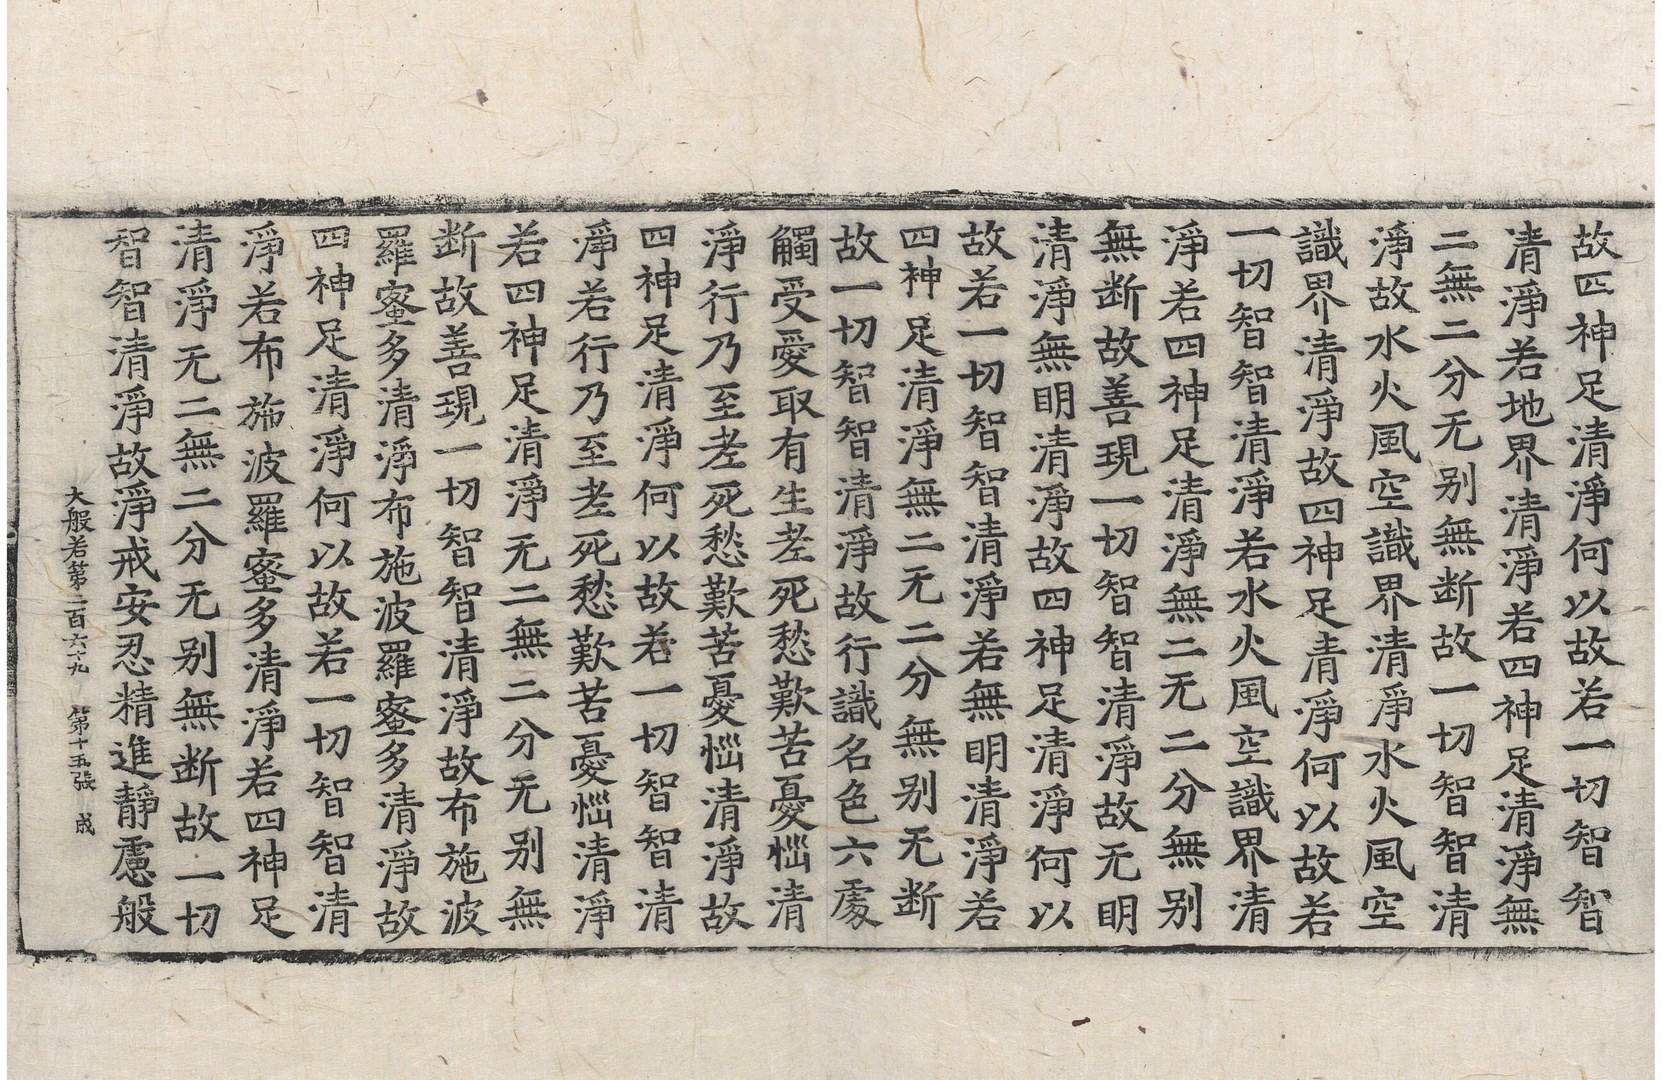 故四神足清淨何以故若一切智智
清淨若地界清淨若四神足清淨無
二無二分无别無断故一切智智清
淨故水火風空識界清淨水火風空
識界清淨故四神足清淨何以故若
一切智智清淨若水火風空識界清
淨若四神足清淨無二无二分無别
無断故善現一切智智清淨故无眀
清淨無眀清淨故四神足清淨何以
故若一切智智清淨若無眀清淨若
四神足清淨無二无二分無别无断
故一切智智清淨故行識名色六處
觸受愛取有生老死愁歎苦憂惱清
淨行乃至老死愁歎苦憂惱清淨故
四神足清淨何以故若一切智智清
淨若行乃至老死愁歎苦憂惱清淨
若四神足清淨无二無二分无别無
断故善現一切智智清淨故布施波
羅蜜多清淨布施波羅蜜多清淨故
四神足清淨何以故若一切智智清
淨若布施波羅蜜多清淨若四神足
清淨无二無二分无别無断故一切
智智清淨故淨戒安忍精進靜慮般
大般若第二百六十九 第十五張 成